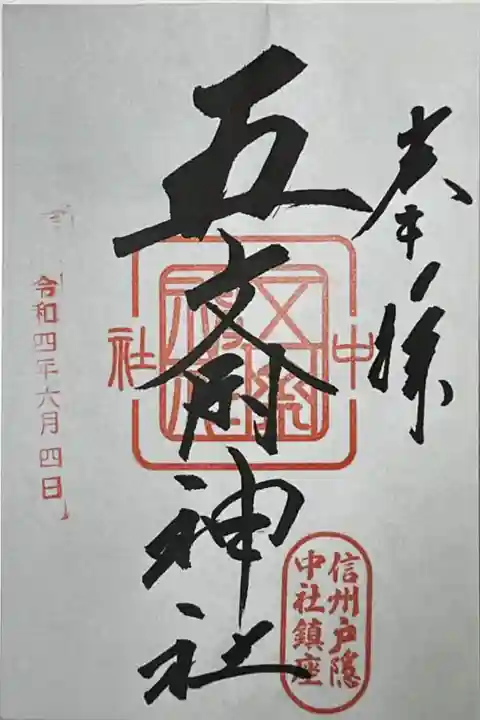 奉拝
五斎神社
中
社
信州戸隠
中社鎮座
令和四年六月四日